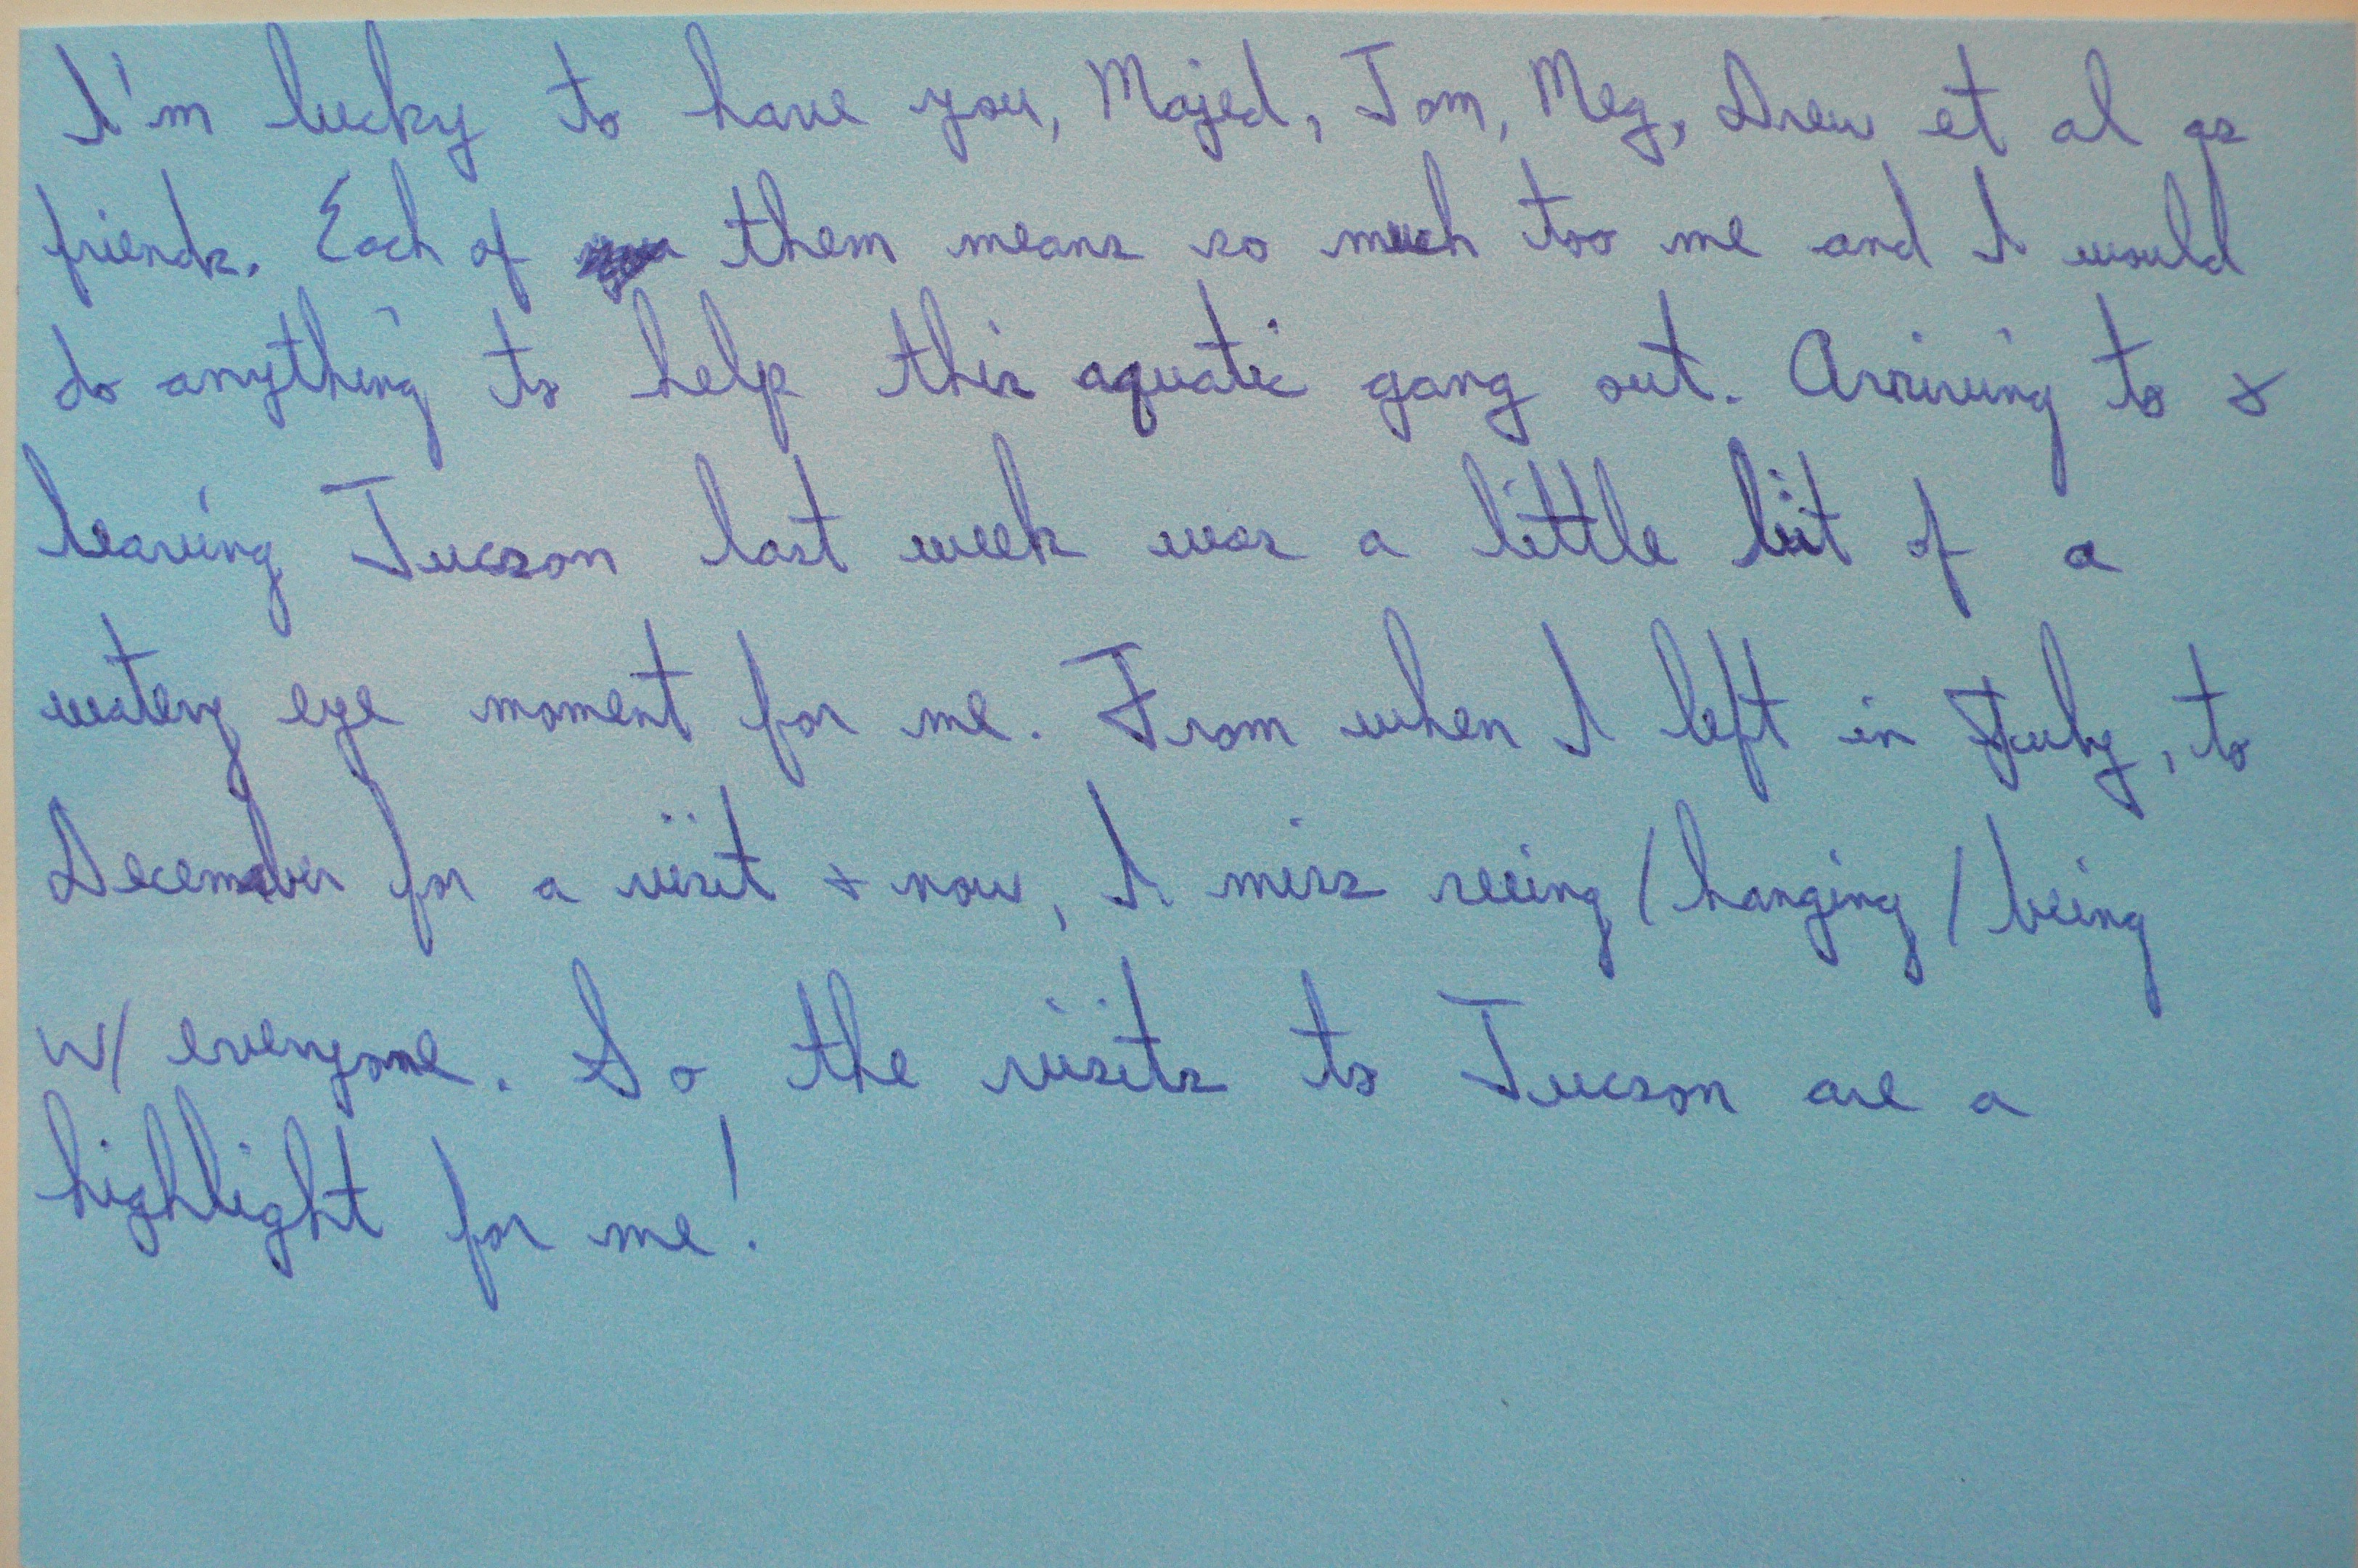 I'm lucky to have you, Majed, Tom, Meg, Drew et al as
friends. Each of them means so much too me and I would
do anything to help this aquatic gang out. Arriving to &
leaving Tucson last week was a little bit of a
watery eye moment for me. From when I left in July, to
December for a visit & now, I miss seeing / hanging / being
w/ everyone. So the visits to Tucson are a
highlight for me!